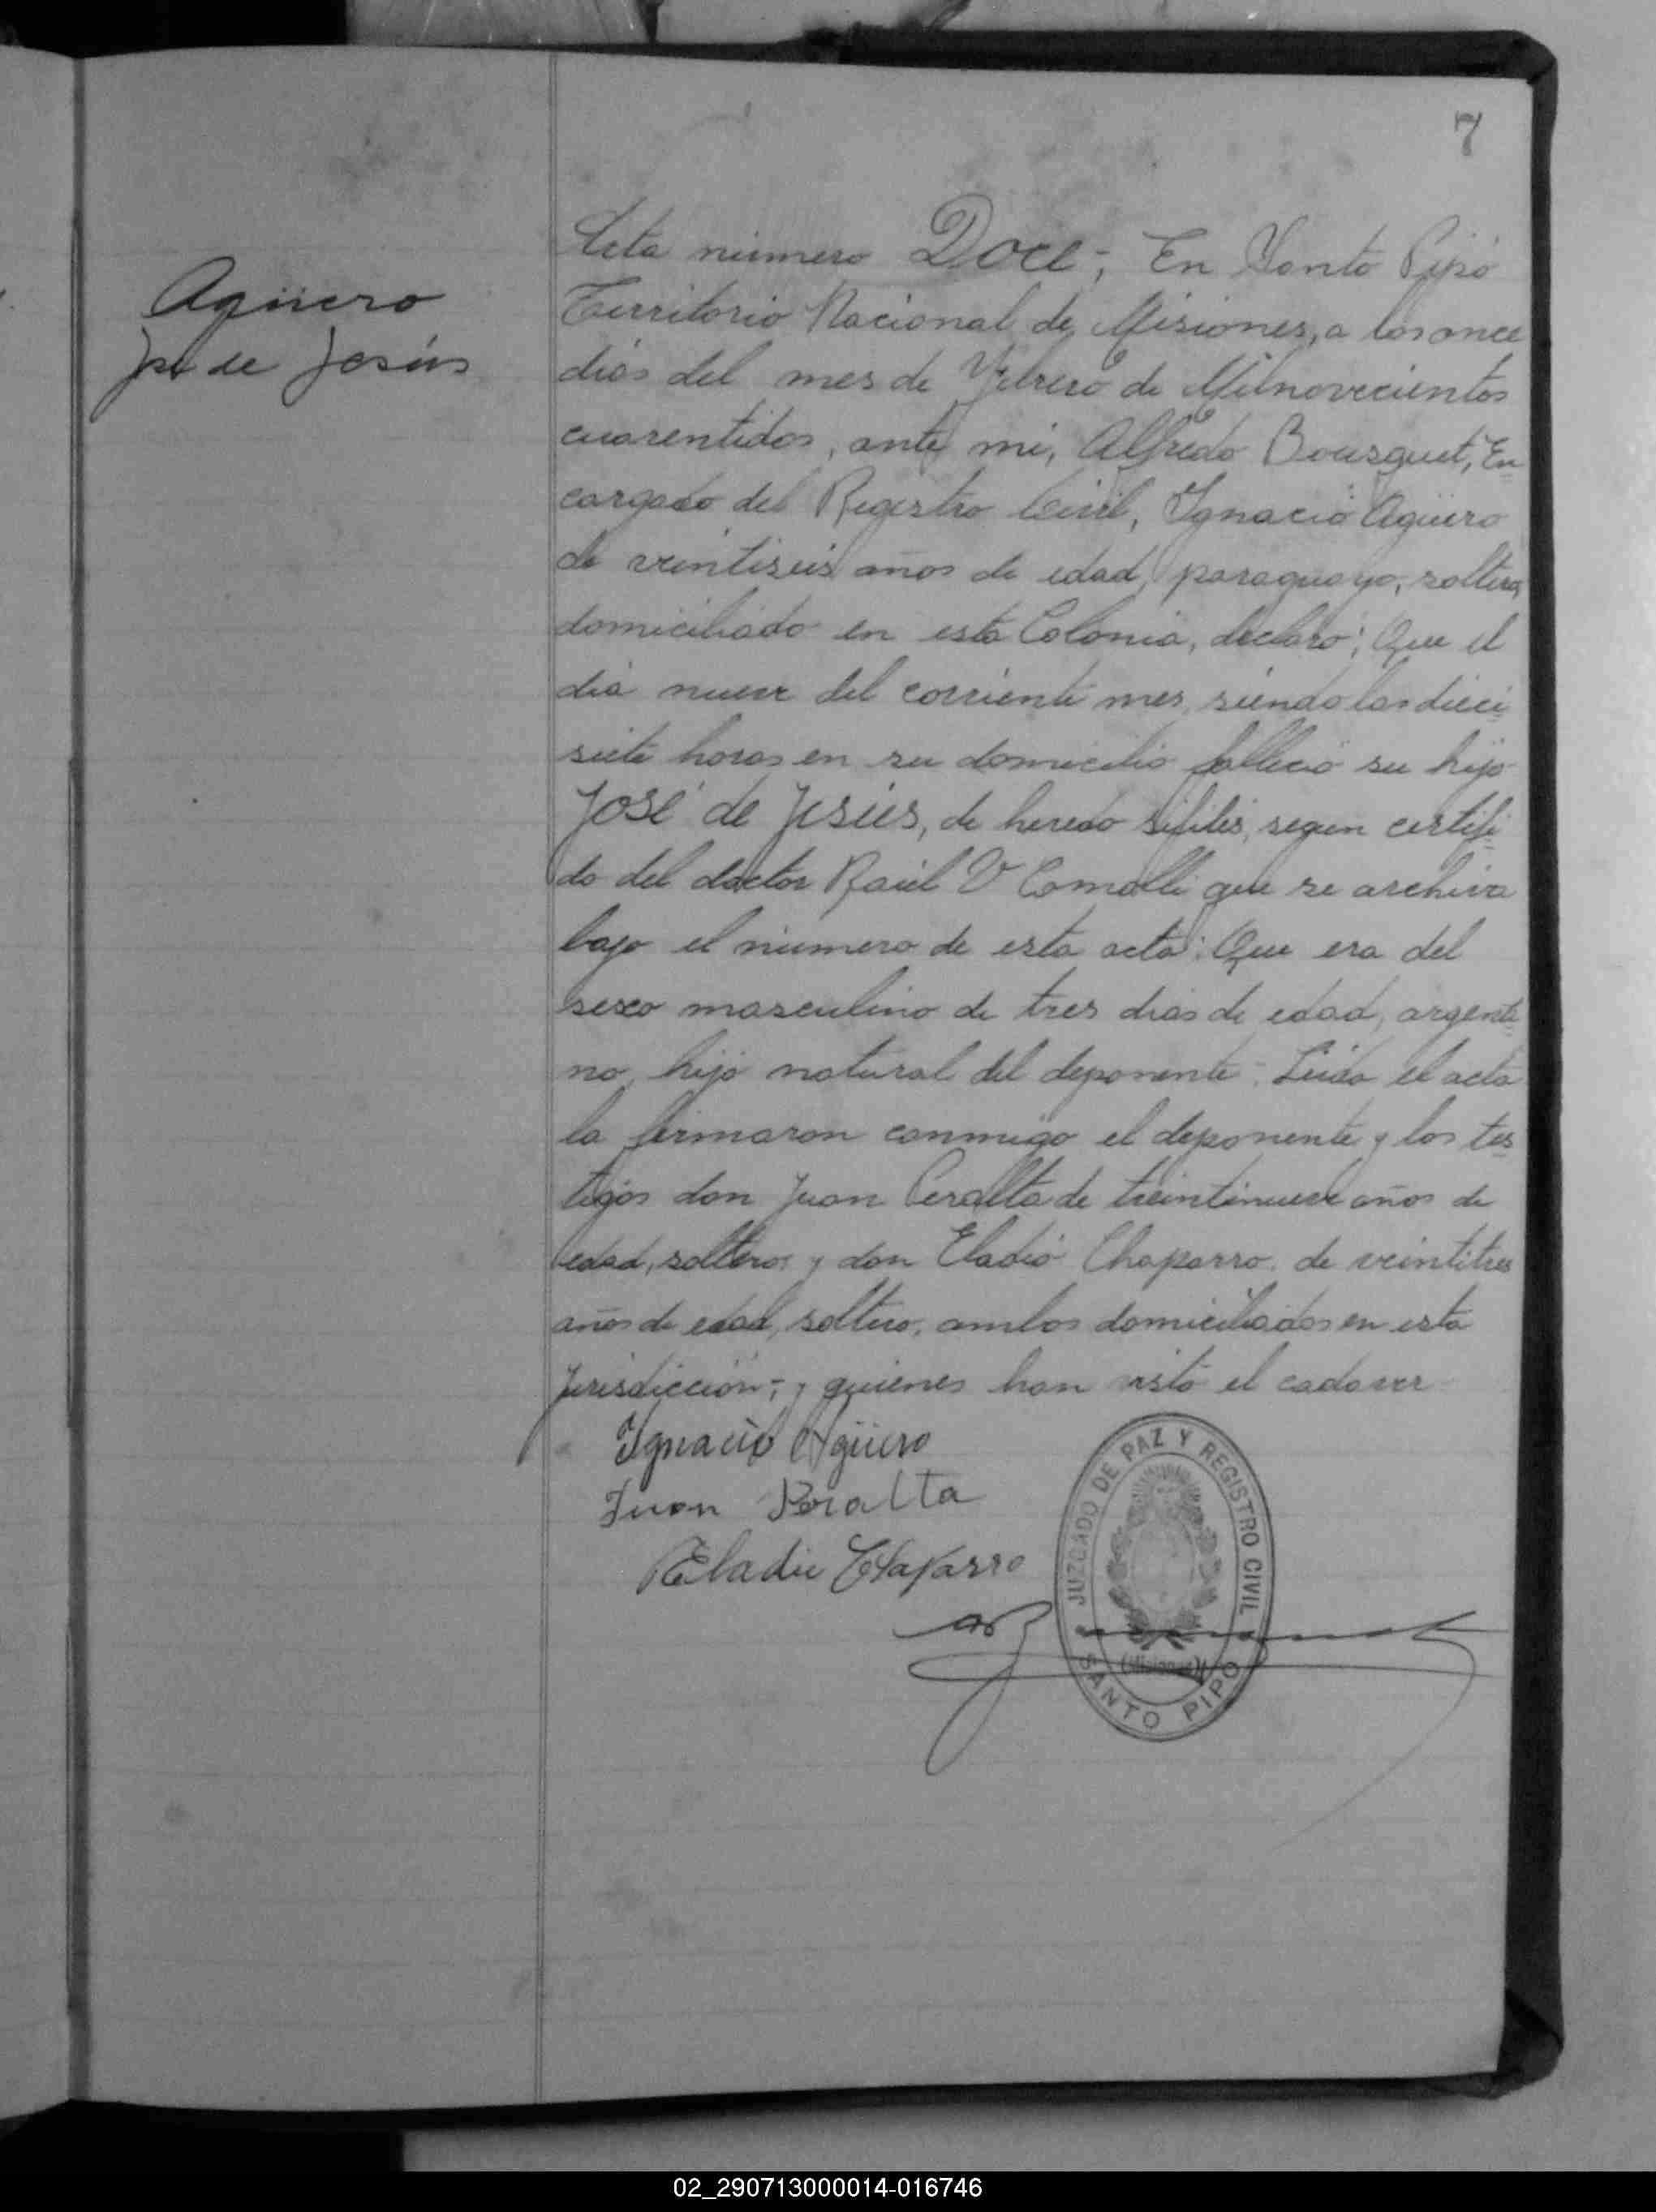 7
Agüero
José de Jesús
Acta número Doce; En Santo Pipó
Territorio Nacional de Misiones, a los once
días del mes de Febrero de Milnovecientos
cuarentidos, ante mi, Alfredo Bousquet, En-
cargado del Registro Civil, Ignacio Agüero
de veintiseis años de edad, paraguayo, soltero,
domiciliado en esta Colonia, declaró; Que el
día nueve del corriente mes, siendo las dieci-
siete horas en su domicilio falleció su hijo
José de Jesús, de heredo sífilis, segun certifi-
do del doctor Raúl V Comolli que se archiva
bajo el número de esta acta: Que era del
sexo masculino de tres días de edad, argenti-
no, hijo natural del deponente. Leida el acta
la firmaron conmigo el deponente y los tes-
tigos don Juan Peralta de treintinueve años de
edad, soltero; y don Eladio Chaparro, de veintitres
años de edad, soltero, ambos domiciliados en esta
Jurisdicción; y quienes han visto el cadaver
Ignacio Agüero
Juan Peralta
Eladio Chaparro
JUZGADO DE PAZ Y REGISTRO CIVIL
(Misiones)
SANTO PIPO
02_290713000014-016746